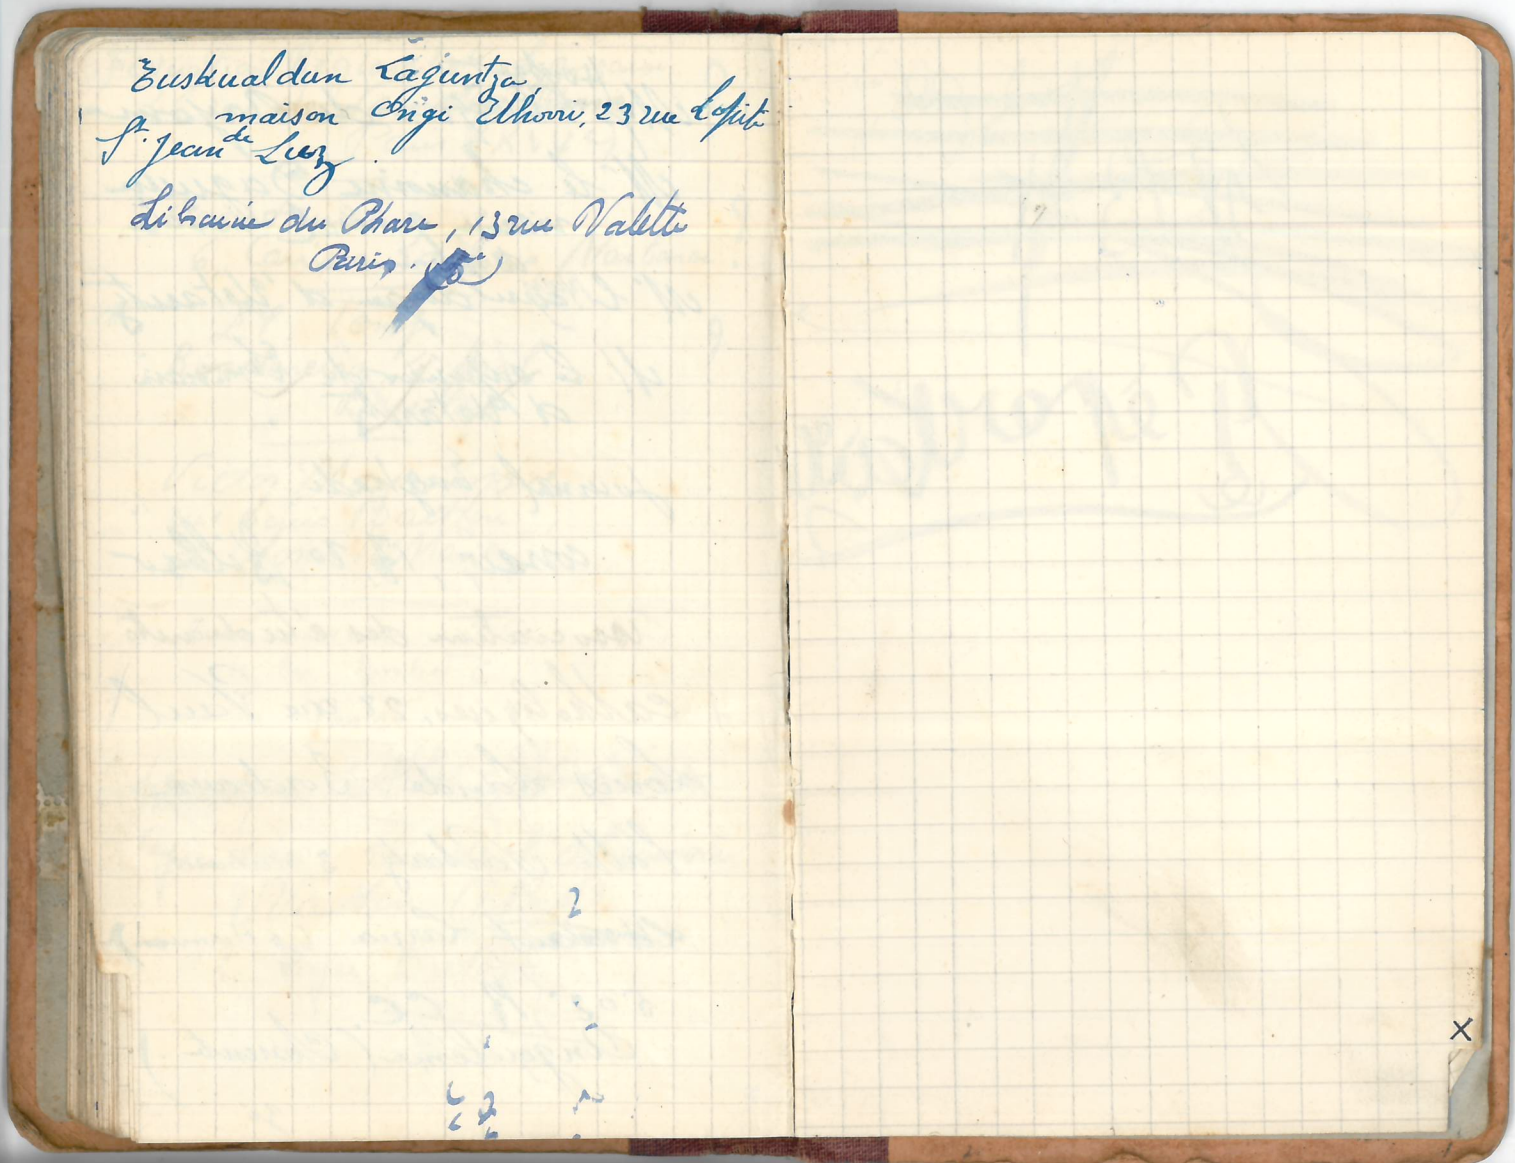 Euskualdun Laguntza,
maison Ongi Ethorri, 23 rue Lopite
St. Jean de Luz.
Librairie du Phare, 13 rue Valette
Paris. (5e)
X